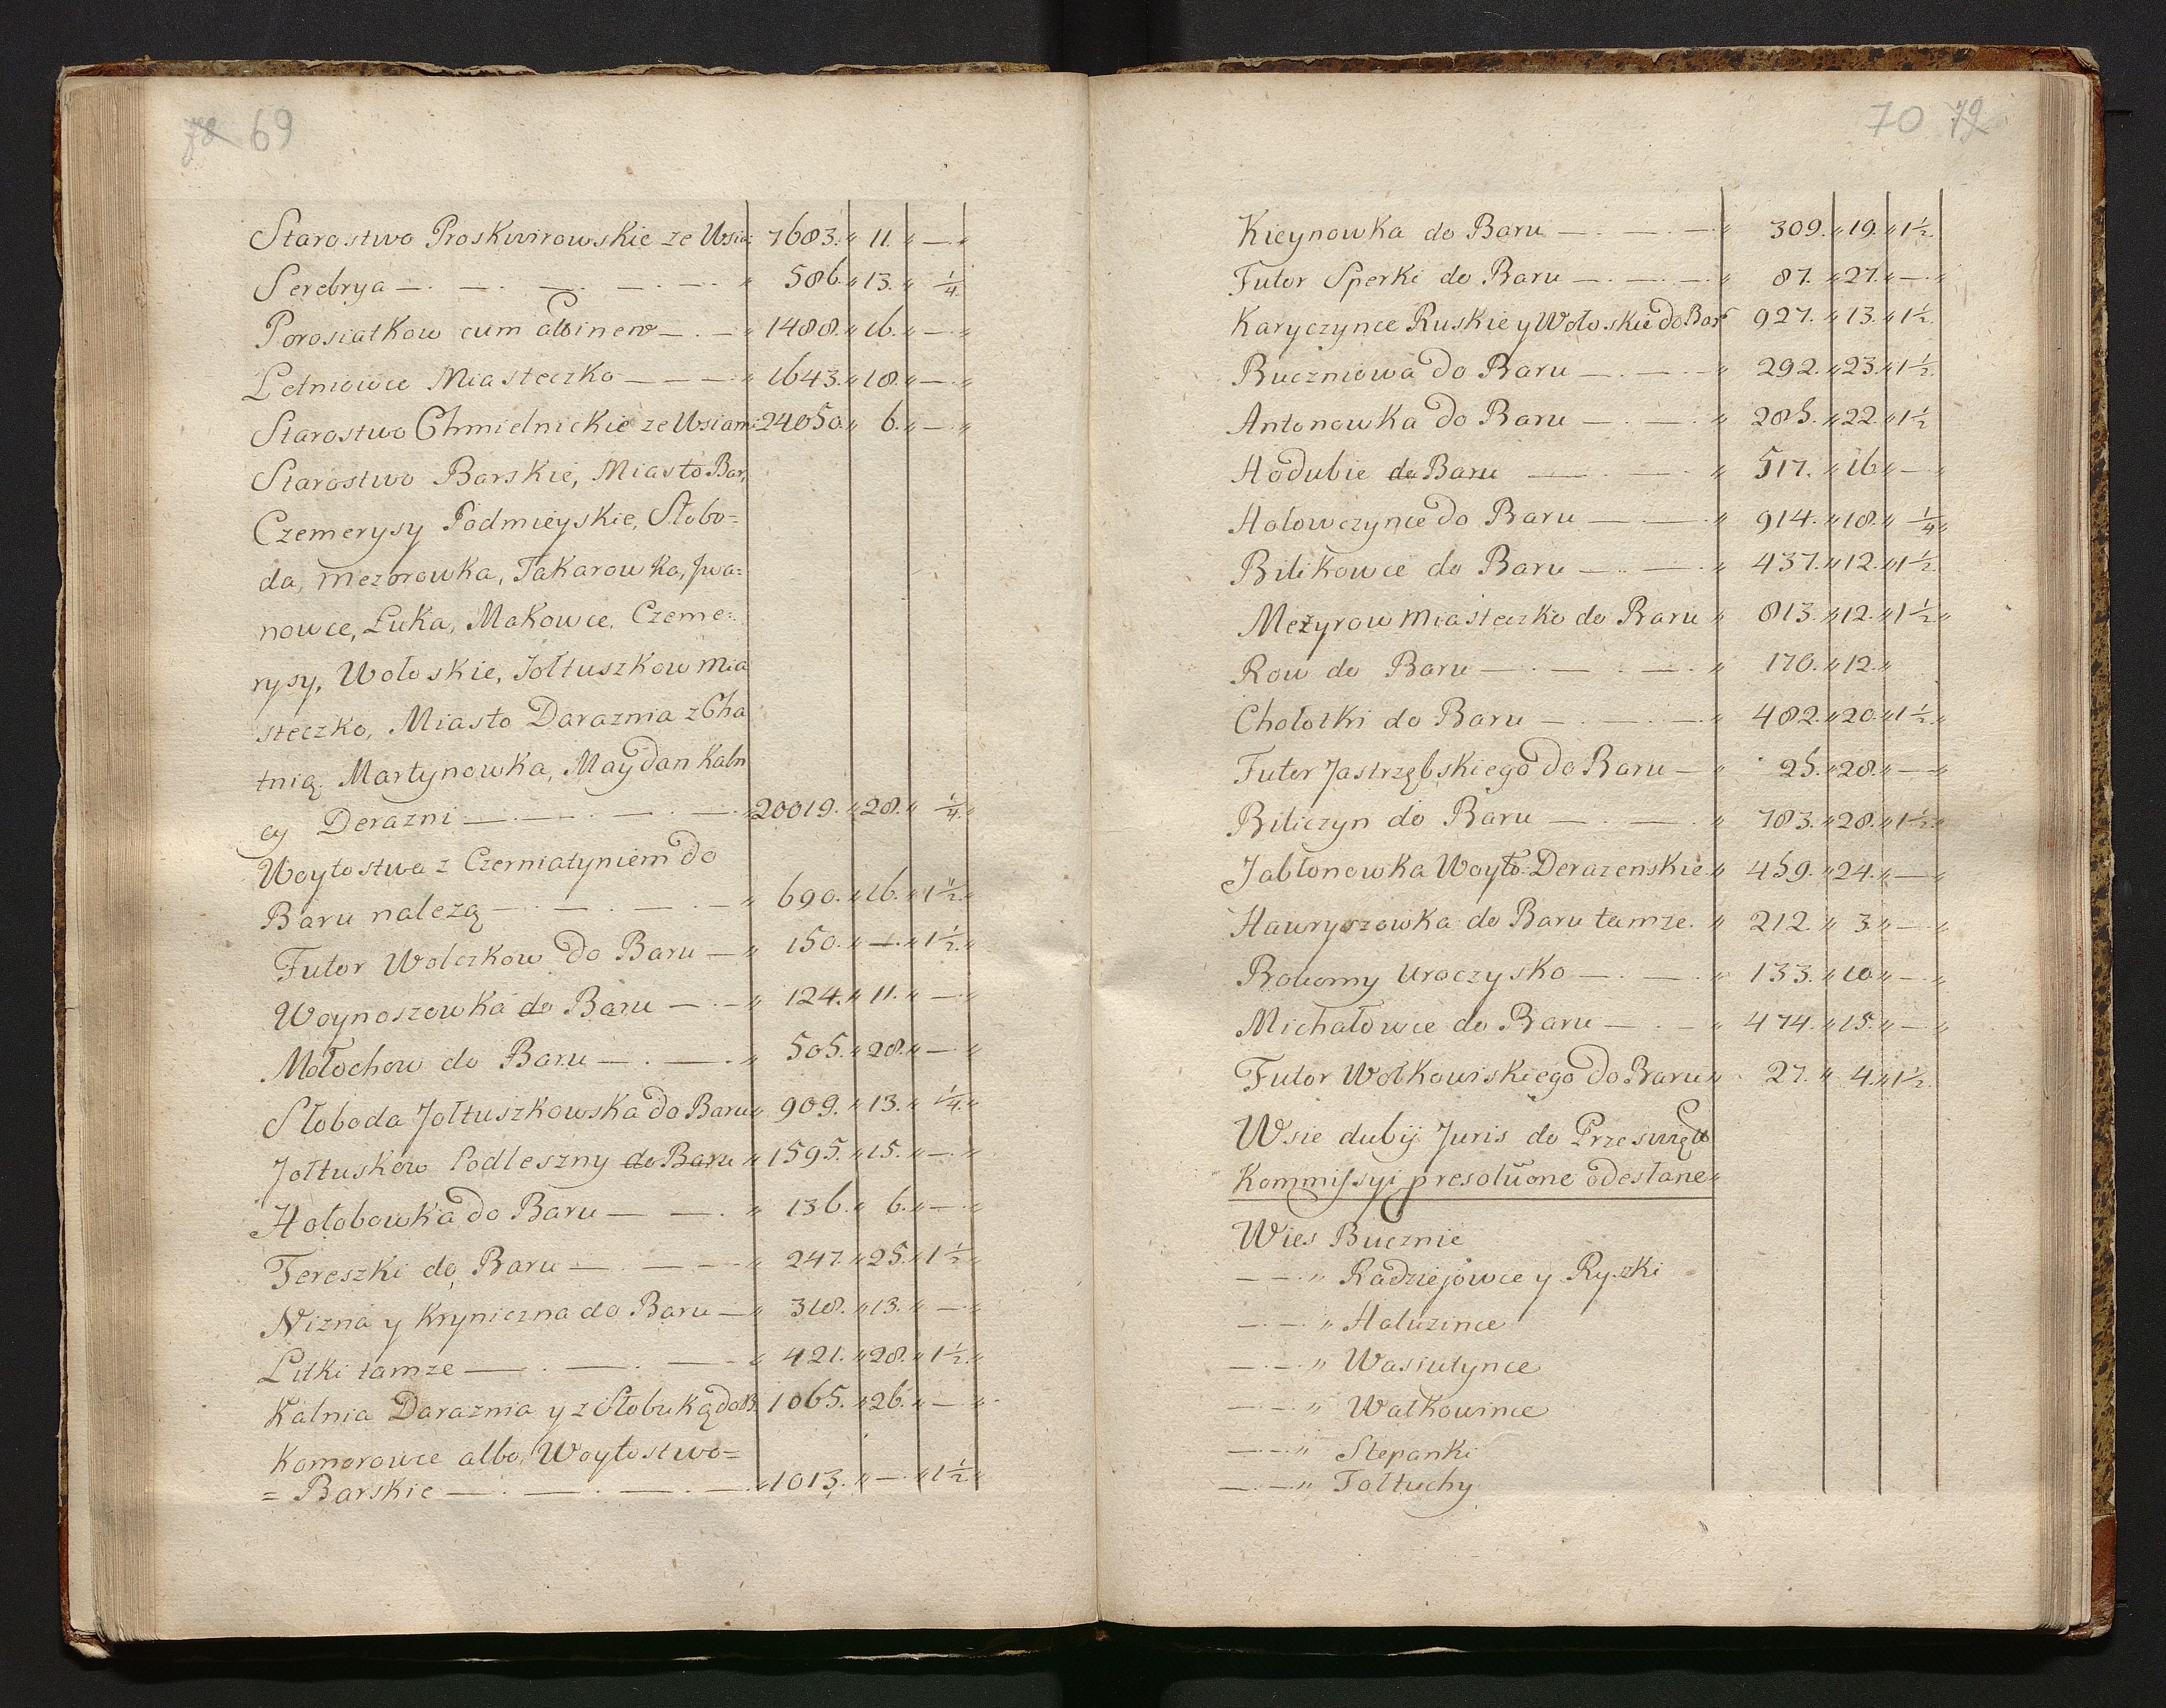 78 69
Starostwo Proskurowskie ze Wsia: 7683. " 11. " — "
Serebrya — . — . — . — . — " 586. " 13. " 1/4.
Porosiatkow cum attinen — . — " 1488. " 16. " — "
Letniowce Miasteczko — — — " 1643. " 18. " — "
Starostwo Chmielnickie ze Wsiam: 24050. " 6. " — "
Starostwo Barskie, Miasto Bar,
Czemerysy Podmieyskie, Słobo=
da, Mezorowka, Takarowka, Jwa=
nowce, Łuka, Makowce, Czeme=
rysy, Wołoskie, Jołtuszkow Mia
steczko, Miasto Daraznia z Cha
tnią, Martynowka, Maydan Kaln
cy Derazni — . — . — " 20019. " 28. " 1/4. "
Woytostwo z Czerniatyniem do
Baru nalezą — . — . — . — " 690. " 16. " 1 1/2. "
Futor Wolczkow do Baru — " 150. " —. " 1 1/2. "
Woynoszowka do Baru — . — " 124. " 11. " — "
Mołochow do Baru — . — . " 505. " 28. " — "
Słoboda Jołtuszkowska do Baru " 909. " 13. " 1/4. "
Jołtuskow Podleszny do Baru " 1595. " 15. " — . "
Hołobowka do Baru — — . " 136. " 6. " — . "
Tereszki do Baru — . — . — " 247. " 25. " 1 1/2 "
Nizna y Kryniczna do Baru — " 318. " 13. " — . "
Litki tamze — . — . — " 421. " 28. " 1 1/2. "
Kalnia Daraznia y z Słobuką do B. 1065. " 26. " — . "
Komorowce albo Woytostwo=
= Barskie — . — . — . — " 1013. " — . " 1 1/2 "
70 79
Kieynowka do Baru — . — . — " 309. " 19. " 1 1/2.
Futor Sperki do Baru — . — . — " 87. " 27. " — . "
Karyczynce Ruskie y Wołoskie do Bar 927. " 13. " 1 1/2.
Buczniowa do Baru — . — . " 292. " 23. " 1 1/2.
Antonowka do Baru — . — . " 285. " 22. " 1 1/2
Hodubie do Baru — . — . " 517. " 16 " — . "
Hołowczynce do Baru — . — . " 914. " 18. " 1/4 "
Bilikowce do Baru — . — . " 437. " 12. " 1 1/2.
Meżyrow Miasteczko do Baru " 813. " 12. " 1 1/2. "
Row do Baru — . — . — . " 170. " 12. "
Chołotki do Baru — . — . — . " 482. " 20. " 1 1/2. "
Futor Jastrzębskiego do Baru — " 25. " 28. " — "
Biliczyn do Baru — . — . " 783. " 28. " 1 1/2. "
Jabłonowka Woyto: Derazenskie " 459. " 24. " — "
Hawryszowka do Baru tamze. " 212. " 3. " — . "
Robomy Uroczysko — . — . " 133. " 10. " — . "
Michałowce do Baru — . — " 474. " 15. " — . "
Futor Wołkowiskiego do Baru " 27. " 4. " 1 1/2.
Wsie dubij Juris do Przeswięt
Kommissyi presolūone odesłane "
Wies Bucznie
— . — . " Radziejowce y Ryszki
— . — . " Haluzince
— . — . " Wasiutynce
— . — . " Wałkowince
— . — . " Stepanki
— . — . " Tołtuchy